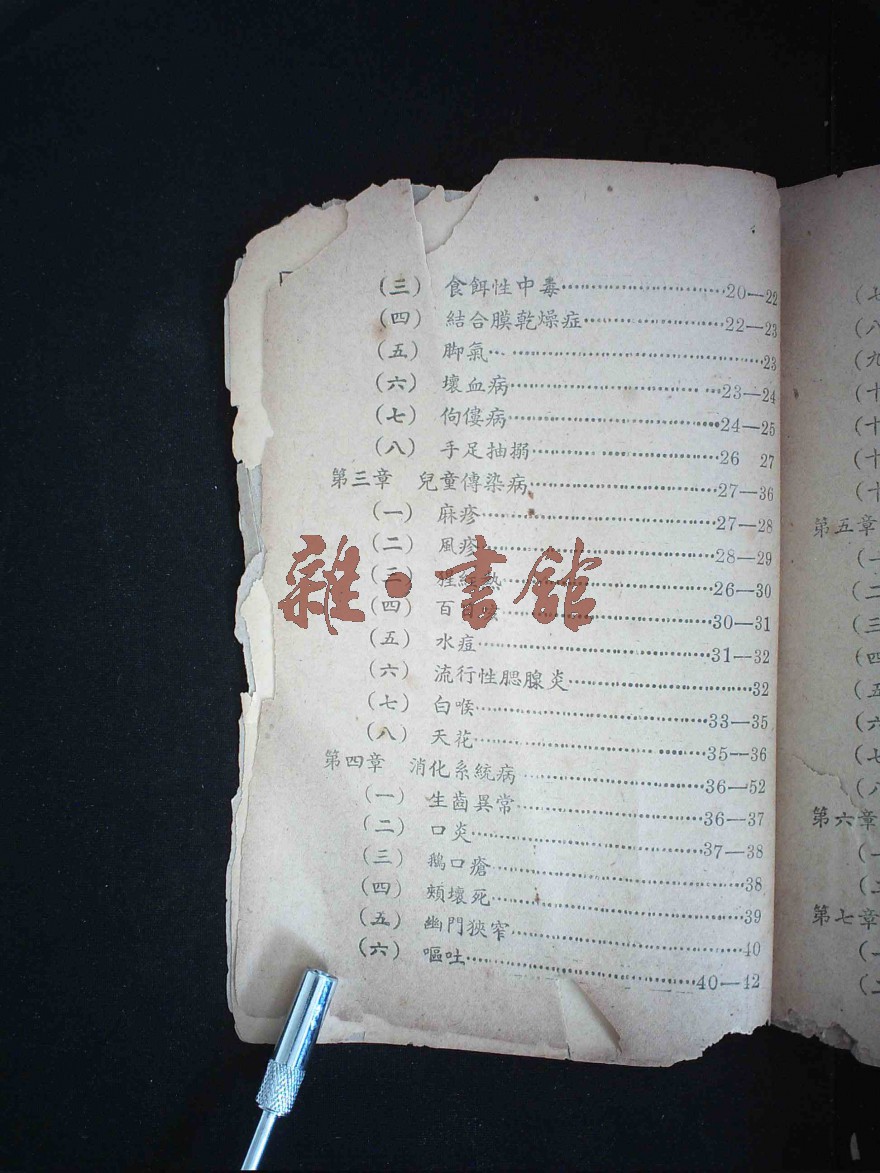 (三) 食餌性中毒………20—22
(四) 結合膜乾燥症………22—23
(五) 脚氣………23
(六) 壞血病………23—24
(七) 佝僂病………24—25
(八) 手足抽搦………26 27
第三章 兒童傳染病………27—36
(一) 麻疹………27—28
(二) 風疹………28—29
(三) 猩紅熱………26—30
(四) 百日咳………30—31
(五) 水痘………31—32
(六) 流行性腮腺炎………32
(七) 白喉………33—35
(八) 天花………35—36
第四章 消化系統病………36—52
(一) 生齒異常………36—37
(二) 口炎………37—38
(三) 鵝口瘡………38
(四) 頰壞死………39
(五) 幽門狹窄………40
(六) 嘔吐………40—42
雜·書館
(七
(八
(九
(十
(十
(十
(十
第五章
(一
(二
(三
(四
(五
(六
(七
(八
第六章
(一
(二
第七章
(一
(二